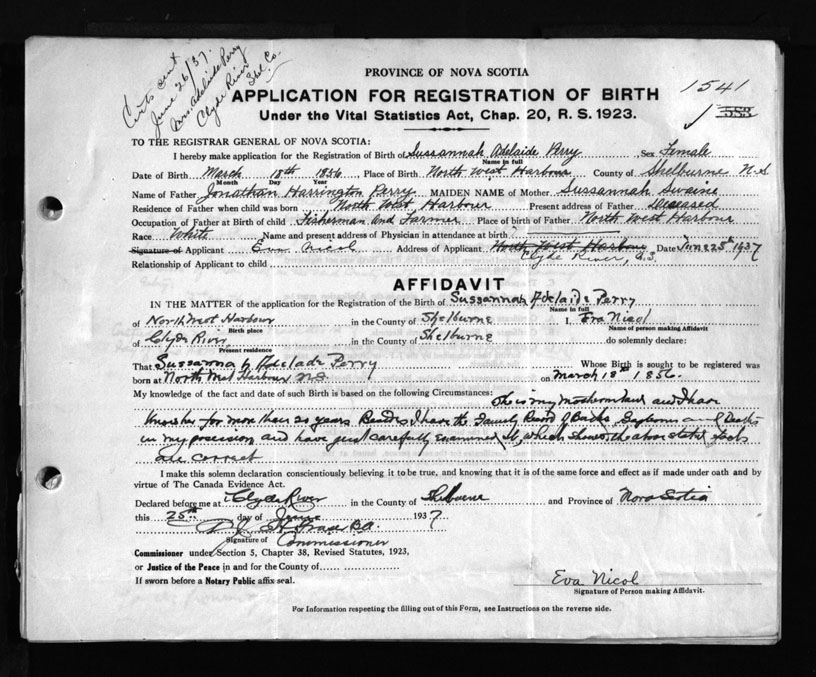 Certs sent
June 26/37.
Mrs Adelaide Perry
Clyde River
Shel. Co.
PROVINCE OF NOVA SCOTIA
1541
APPLICATION FOR REGISTRATION OF BIRTH
Under the Vital Statistics Act, Chap. 20, R. S. 1923.
TO THE REGISTRAR GENERAL OF NOVA SCOTIA:
I hereby make application for the Registration of Birth of Sussannah Adelaide Perry Sex Female
Name in full
Date of Birth March 18th 1856 Place of Birth North West Harbour County of Shelburne N.S
Month Day Year
Name of Father Jonathan Harrington Perry MAIDEN NAME of Mother Sussannah Swaine
Residence of Father when child was born North West Harbour Present address of Father Deceased
Occupation of Father at Birth of child Fisherman and Farmer Place of birth of Father North West Harbour
Race White Name and present address of Physician in attendance at birth
Signature of Applicant Eva Nicol Address of Applicant North West Harbour Date June 25th 1937
Clyde River, N.S.
Relationship of Applicant to child
AFFIDAVIT
IN THE MATTER of the application for the Registration of the Birth of Sussannah Adelaide Perry
Name in full
of North West Harbour in the County of Shelburne I, Eva Nicol
Birth place Name of person making Affidavit
of Clyde River in the County of Shelburne do solemnly declare:
Present residence
That Sussannah Adelaide Perry Whose Birth is sought to be registered was
born at North West Harbour N.S. on March 18th 1856.
My knowledge of the fact and date of such Birth is based on the following Circumstances: She is my and I have
known her for more than 20 years Besides I have the Family Record of Births and Deaths
in my possession and have just carefully examined it, which shows the above stated facts
are correct
I make this solemn declaration conscientiously believing it to be true, and knowing that it is of the same force and effect as if made under oath and by
virtue of The Canada Evidence Act.
Declared before me at Clyde River in the County of Shelburne and Province of Nova Scotia
this 25th day of June 1937
Signature of Commissioner
Commissioner under Section 5, Chapter 38, Revised Statutes, 1923,
or Justice of the Peace in and for the County of
If sworn before a Notary Public affix seal.
Eva Nicol
Signature of Person making Affidavit.
For Information respecting the filling out of this Form, see Instructions on the reverse side.